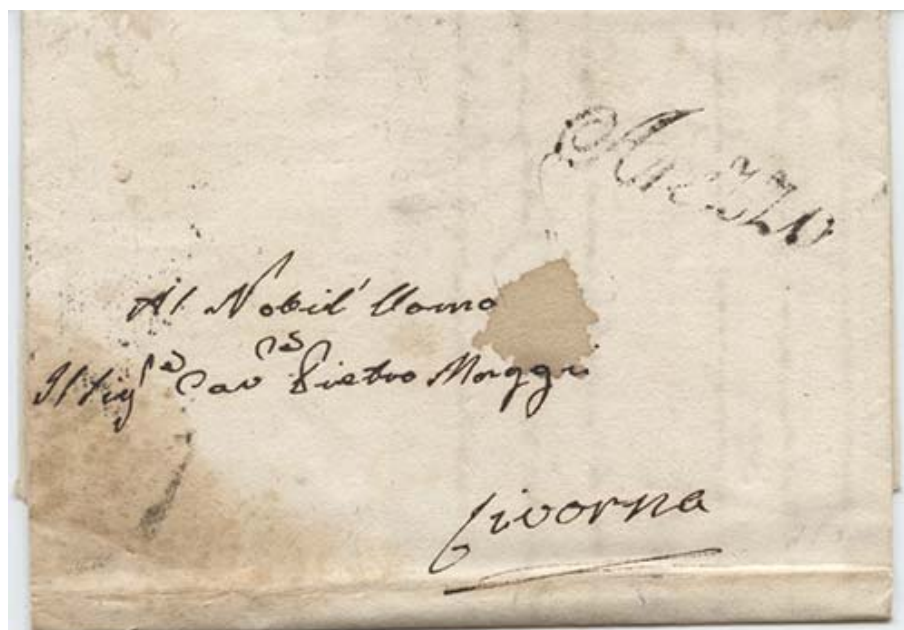 Arezzo
Al Nobil' Uomo
Il Sig.e Cav.e Pietro Moggi
Livorna